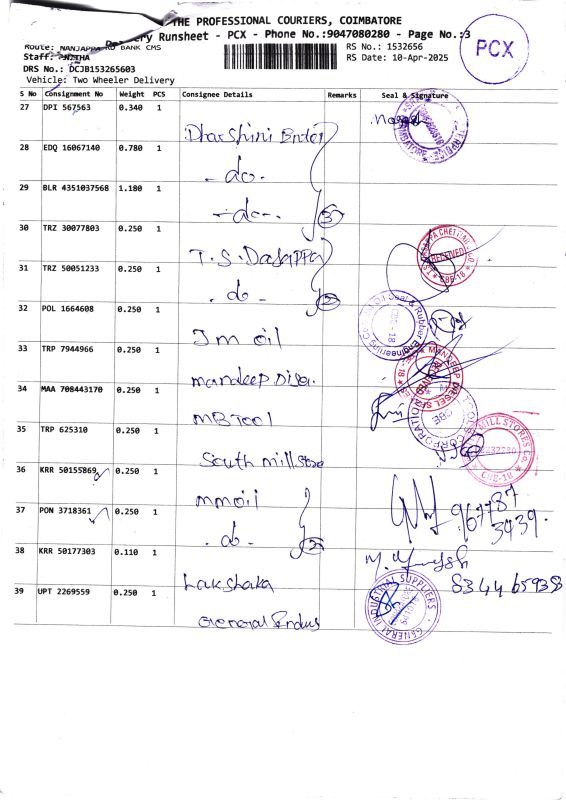 THE PROFESSIONAL COURIERS, COIMBATORE
Runsheet - PCX - Phone No.:9047080280 - Page No.:3
PCX
Route: NANJAPPA RD BANK CMS
RS No.: 1532656
Staff:
RS Date: 10-Apr-2025
DRS No.: DCJB153265603
Vehicle: Two Wheeler Delivery
S No Consignment No Weight PCS Consignee Details Remarks Seal & Signature
27 DPI 567563 0.340 1
Dharshini
28 EDQ 16067140 0.780 1
- do -
29 BLR 4351037568 1.180 1
- do - 3
30 TRZ 30077803 0.250 1
T.S. Dasappa
RECEIVED
CBE-18
31 TRZ 50051233 0.250 1
- do - 2
32 POL 1664608 0.250 1
Jm oil
Seal & Rubber Engineering Co
CBE - 18
33 TRP 7944966 0.250 1
mandeep
MANDEEP DIESEL
34 MAA 708443170 0.250 1
MB Tool
CORPORATION
CBE
35 TRP 625310 0.250 1
South mill store
MILL STORES Co.
CBE-18
36 KRR 50155869 0.250 1
mmoil
37 PON 3718361 0.250 1
- do - 2
967787
3439.
38 KRR 50177303 0.110 1
Lakshaka
8344659358
39 UPT 2269559 0.250 1
General Indus
GENERAL INDUSTRIAL SUPPLIERS